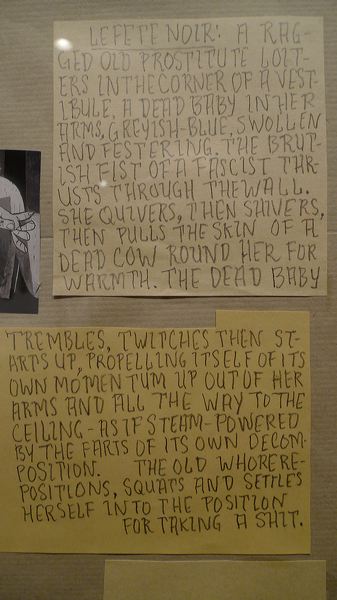 LE FETE NOIR: A RAG-
GED OLD PROSTITUTE LOIT-
ERS IN THE CORNER OF A VEST-
IBULE, A DEAD BABY IN HER
ARMS, GREYISH-BLUE, SWOLLEN
AND FESTERING. THE BRUT-
ISH FIST OF A FASCIST THR-
USTS THROUGH THE WALL.
SHE QUIVERS, THEN SHIVERS,
THEN PULLS THE SKIN OF A
DEAD COW ROUND HER FOR
WARMTH. THE DEAD BABY
TREMBLES, TWITCHES THEN ST-
ARTS UP, PROPELLING ITSELF OF ITS
OWN MOMENTUM UP OUT OF HER
ARMS AND ALL THE WAY TO THE
CEILING - AS IF STEAM-POWERED
BY THE FARTS OF ITS OWN DECOM-
POSITION. THE OLD WHORE RE-
POSITIONS, SQUATS AND SETTLES
HERSELF INTO THE POSITION
FOR TAKING A SHIT.